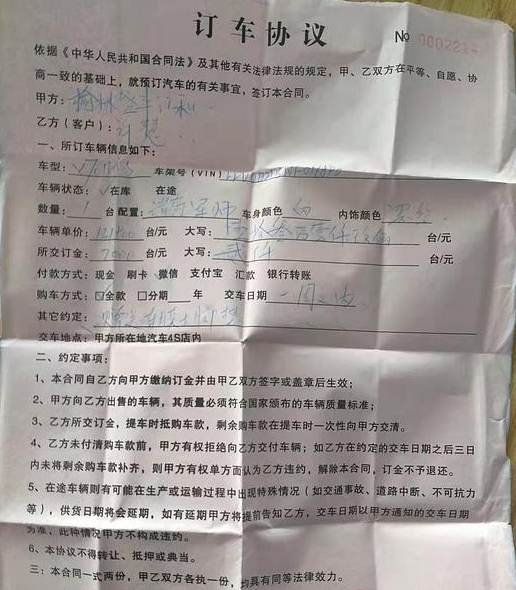 订车协议
№ 0002214
依据《中华人民共和国合同法》及其他有关法律法规的规定，甲、乙双方在平等、自愿、协
商一致的基础上，就预订汽车的有关事宜，签订本合同。
甲方：
乙方（客户）：
一、所订车辆信息如下：
车型： 车架号（VIN）
车辆状态：√在库 在途
数量：1 台 配置： 车身颜色 白 内饰颜色
车辆单价： 台/元 大写： 台/元
所交订金： 台/元 大写： 台/元
付款方式：现金 刷卡 微信 支付宝 汇款 银行转账
购车方式：☑全款 □分期 年 交车日期 一周之内
其它约定：
交车地点：甲方所在地汽车4S店内
二、约定事项：
1、本合同自乙方向甲方缴纳订金并由甲乙双方签字或盖章后生效；
2、甲方向乙方出售的车辆，其质量必须符合国家颁布的车辆质量标准；
3、乙方所交订金，提车时抵购车款，剩余购车款在提车时一次性向甲方交清。
4、乙方未付清购车款前，甲方有权拒绝向乙方交付车辆；如乙方在约定的交车日期之后三日
内未将剩余购车款补齐，则甲方有权单方面认为乙方违约，解除本合同，订金不予退还。
5、在途车辆则有可能在生产或运输过程中出现特殊情况（如交通事故、道路中断、不可抗力
等），供货日期将会延期，如有延期甲方将提前告知乙方，交车日期以甲方通知的交车日期
为准，此种情况甲方不构成违约。
6、本协议不得转让、抵押或典当。
三：本合同一式两份，甲乙双方各执一份，均具有同等法律效力。